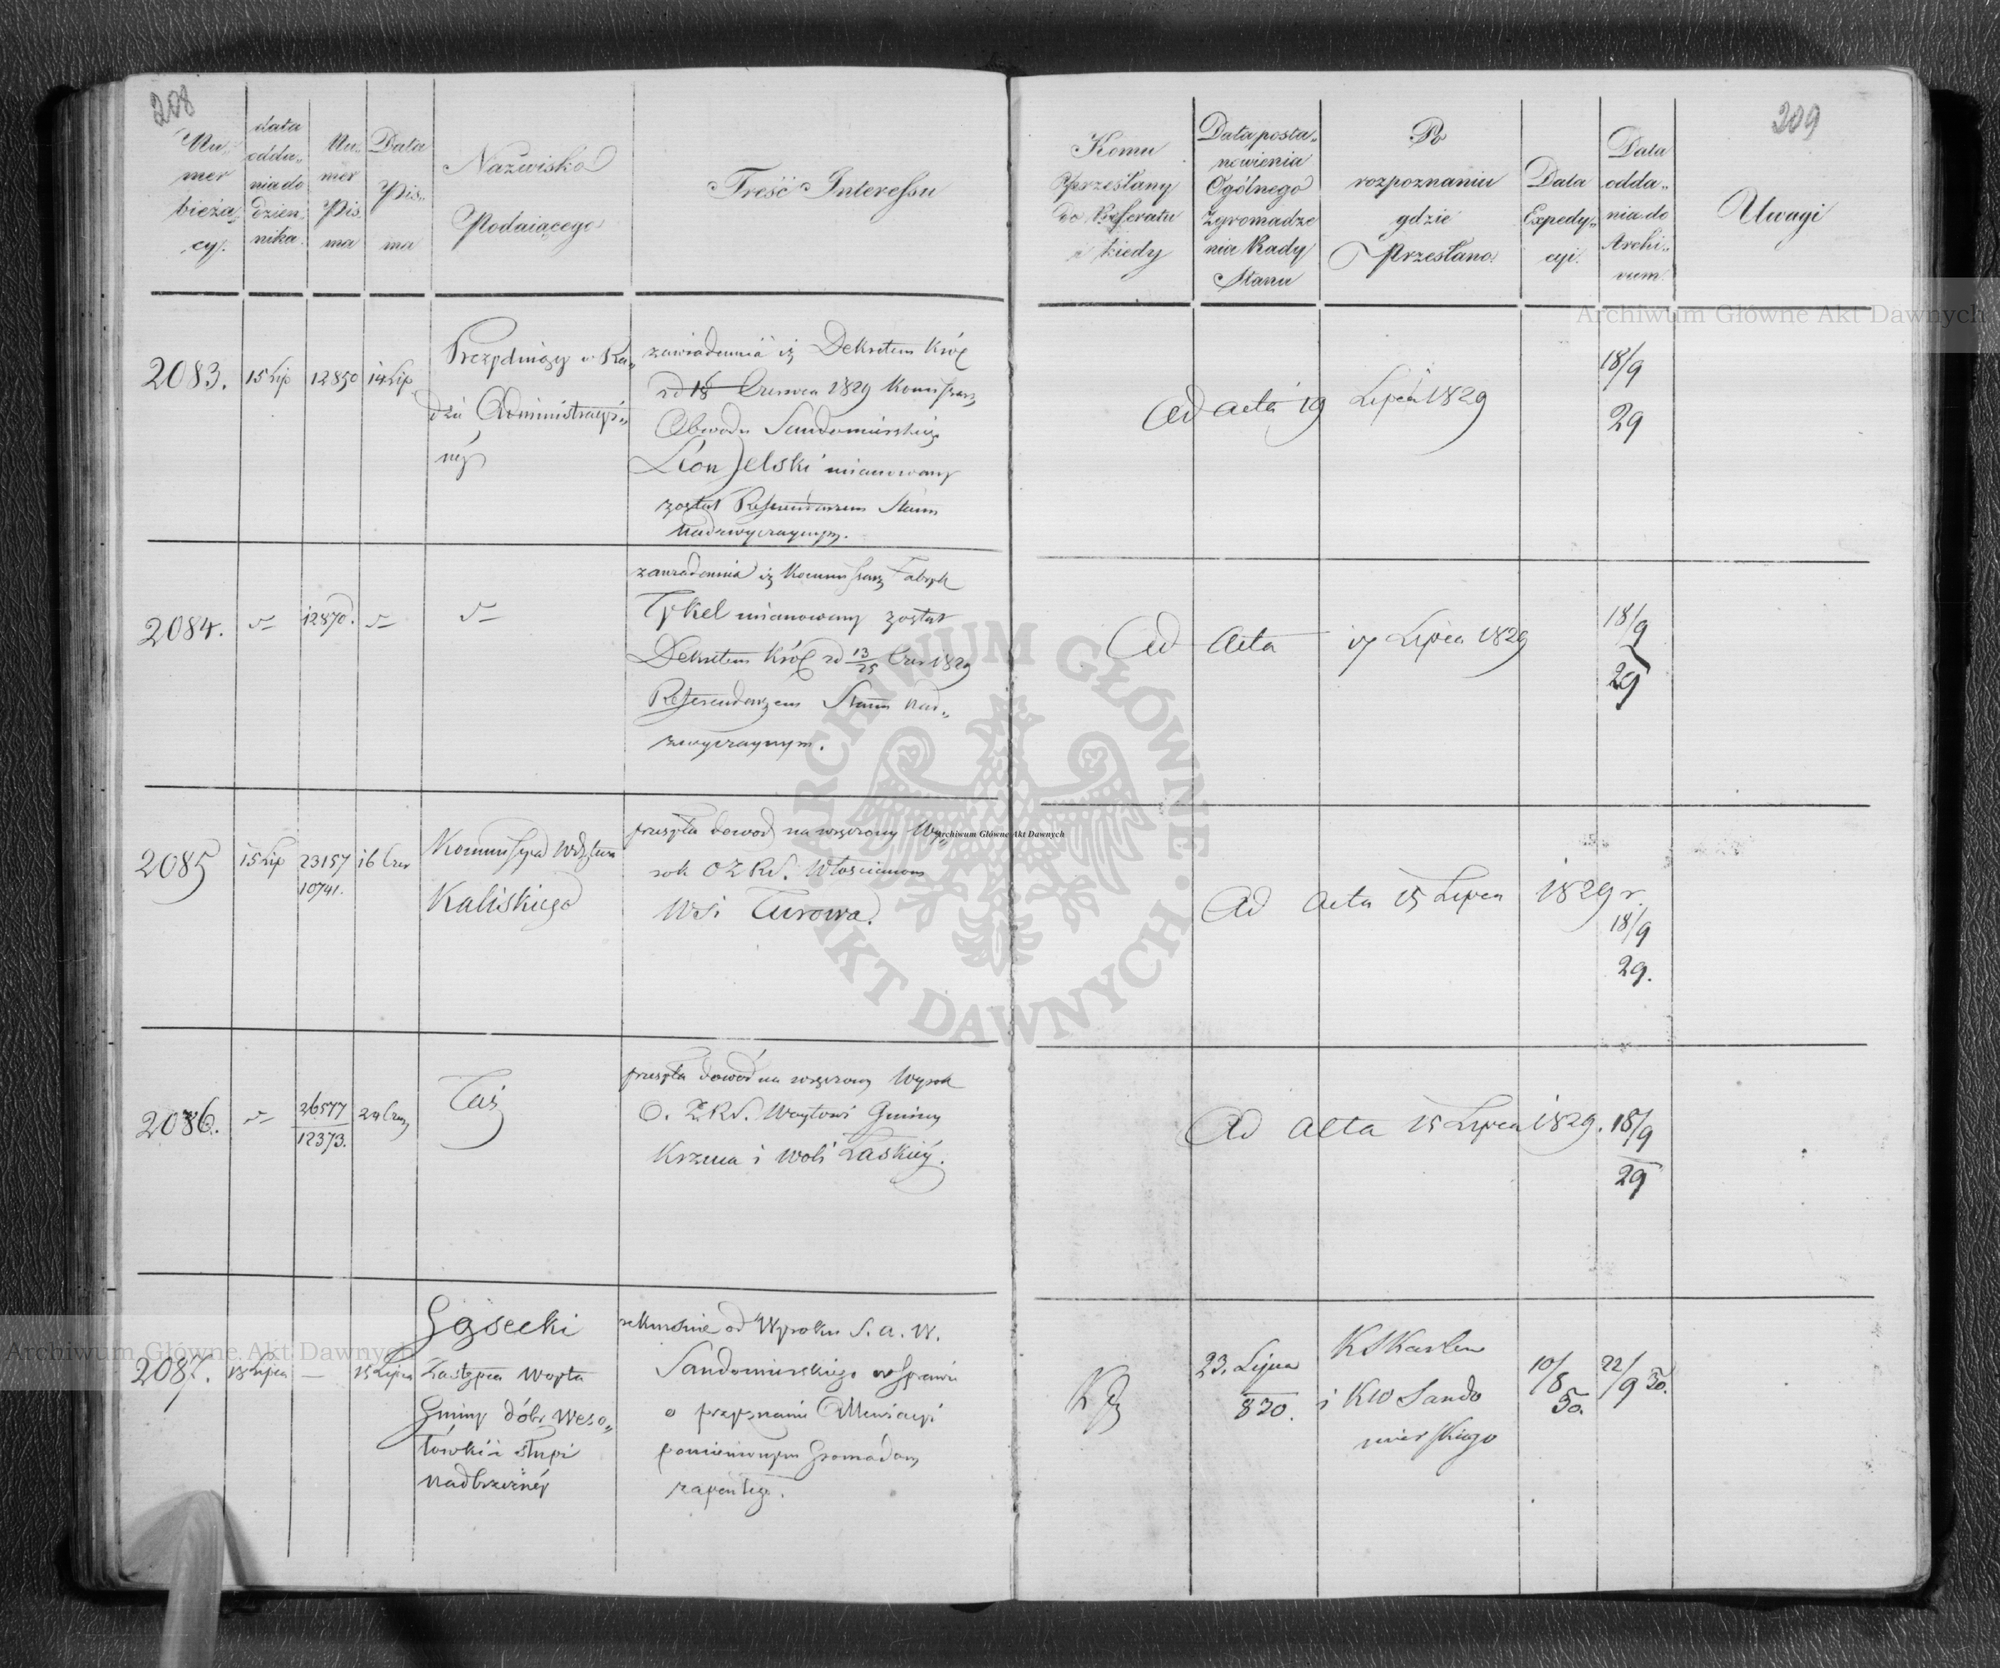 208
Nu-
mer
bieżą-
cy.
data
oddu-
nia do
dzien-
nika.
Nu-
mer
Pis
ma
Data
Pis-
ma
Nazwisko
Podaiącego
Treść Interessu
2083.
15 Lip
12850
14 Lip
Prezyduiący w Ra-
dzie Administracyi-
néy
zawiadamia iż Dekretem Król
od 18 Czerwca 1829 Kommissarz
Obwodu Sandomirskiego
Leon Jelski mianowany
został Referendarzem Stanu
Nadzwyczaynym.
2084.
12870.
zawiadamia iż Kommissarz Fabryk
Tykel mianowany został
Dekretem Król od 13/25 Czer 1829
Referendarzem Stanu Nad-
zwyczaynym.
2085
15 Lip
23157
10741.
16 Czer
Kommissya Wdztwa
Kaliskiego
przesyła dowod na wręczony Wy-
rok O Z R S. Włościanom
Wsi Turowa.
2086.
26577
12373.
24 Czer
Taż
przesyła dowód na wręczony Wyrok
O. Z R S. Woytowi Gminy
i Woli Łaskiéy.
2087.
15 Lipca
Gąsecki
Zastępca Woyta
Gminy dóbr Weso-
łówki i Słupi
Nadbrzeżnéy
od Wyroku S. a. W.
Sandomirskiego w Sprawie
o przyznanie
Gromadom
209
Komu
przesłany
do Referatu
i kiedy
Data posta-
nowienia
Ogólnego
Zgromadze
nia Rady
Stanu
Po
rozpoznaniu
gdzie
Przesłano.
Data
Expedy-
cyi.
Data
odda-
nia do
Archi-
wum.
Uwagi
Ad acta 19 Lipca 1829
18/9
29
Ad Acta 17 Lipca 1829
18/9
29
Ad Acta 15 Lipca 1829 r.
18/9
29.
Ad Acta 15 Lipca 1829.
18/9
29
23. Lipca
830.
i KW Sando
mierskiego
10/8
30.
22/9 30.
Archiwum Główne Akt Dawnych
Archiwum Główne Akt Dawnych
Archiwum Główne Akt Dawnych
ARCHIWUM GŁÓWNE
AKT DAWNYCH